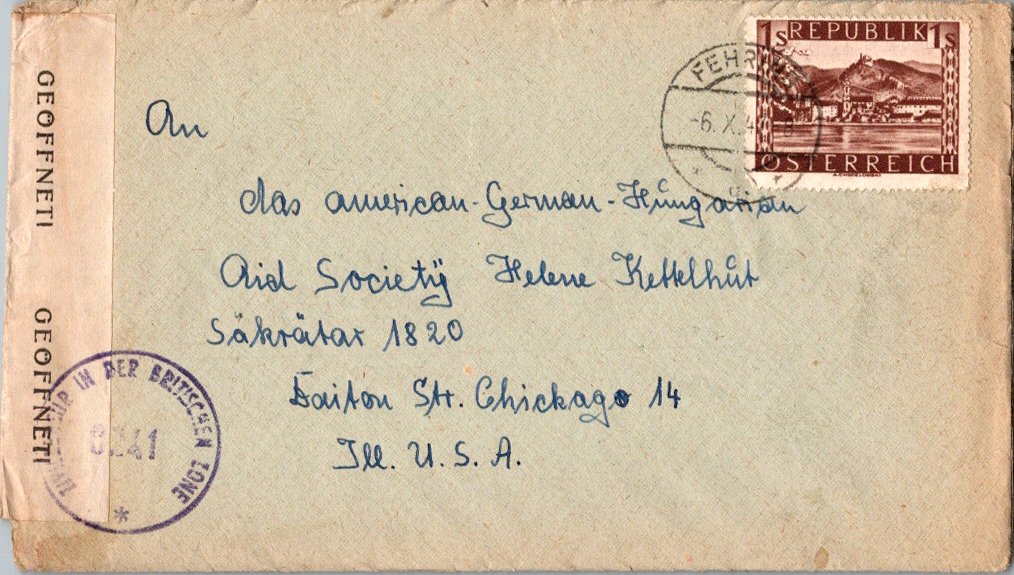 GEÖFFNET!
GEÖFFNET!
1S REPUBLIK 1S
ÖSTERREICH
-6. X. 4
An
das american-German-Hungarian
Aid Society Helene Kettelhut
Säkrätar 1820
Daiton Str. Chickago 14
Ill. U.S.A.
IN DER BRITISCHEN ZONE
*